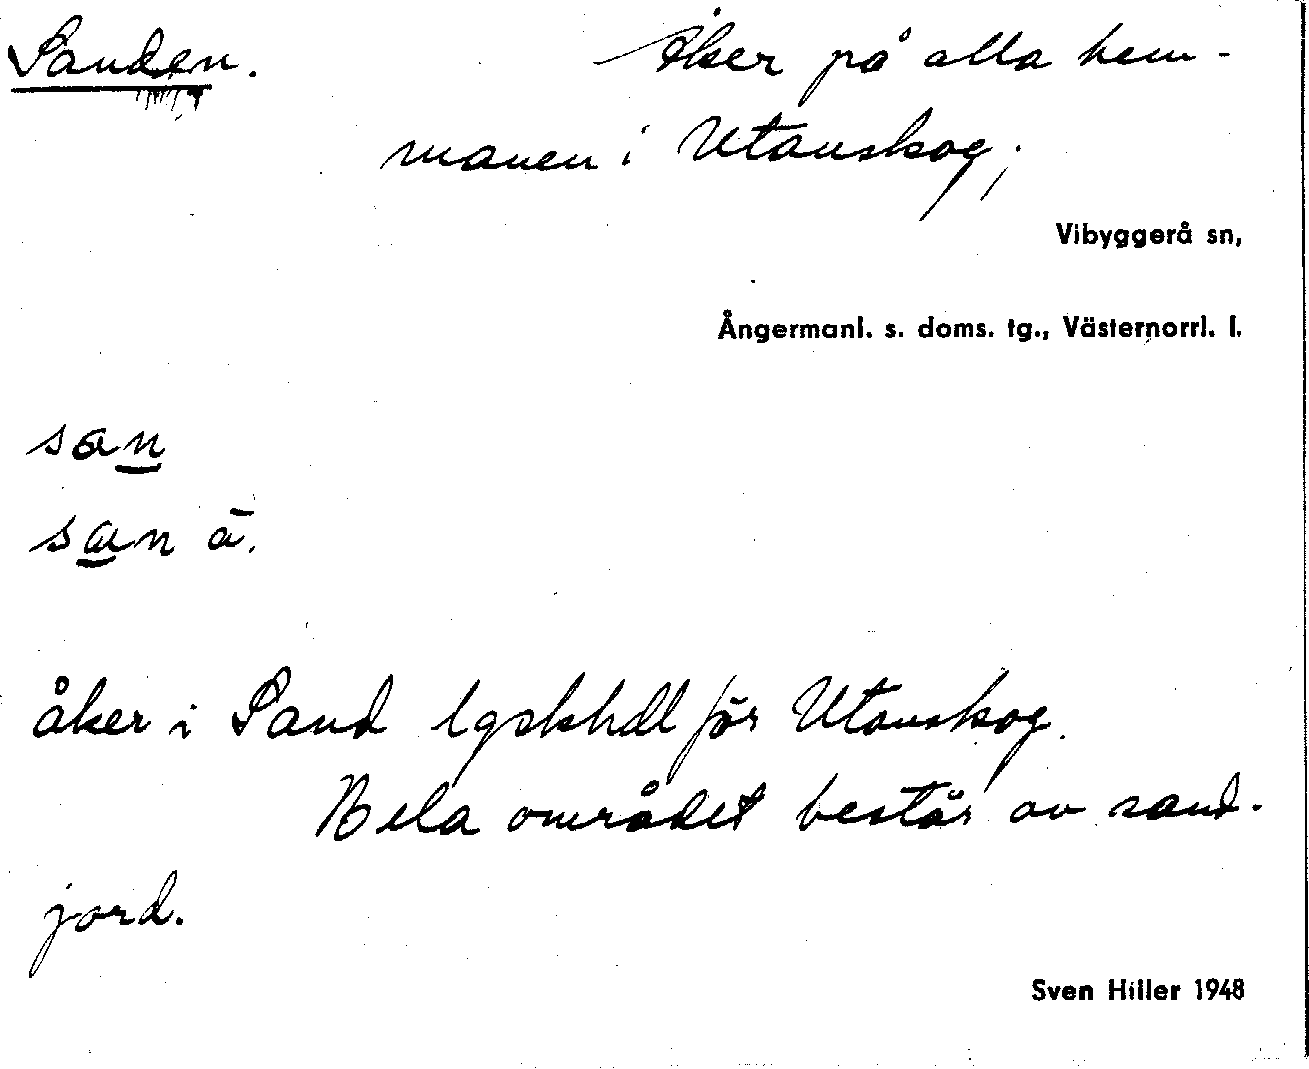 Sanden. Åker på alla hem-
manen i Utanskog;
Vibyggerå sn,
Ångermanl. s. doms. tg., Västernorrl. l.
san
san ā.
åker i Sand lgskhdl för Utanskog.
Hela området består av sand-
jord.
Sven Hiller 1948